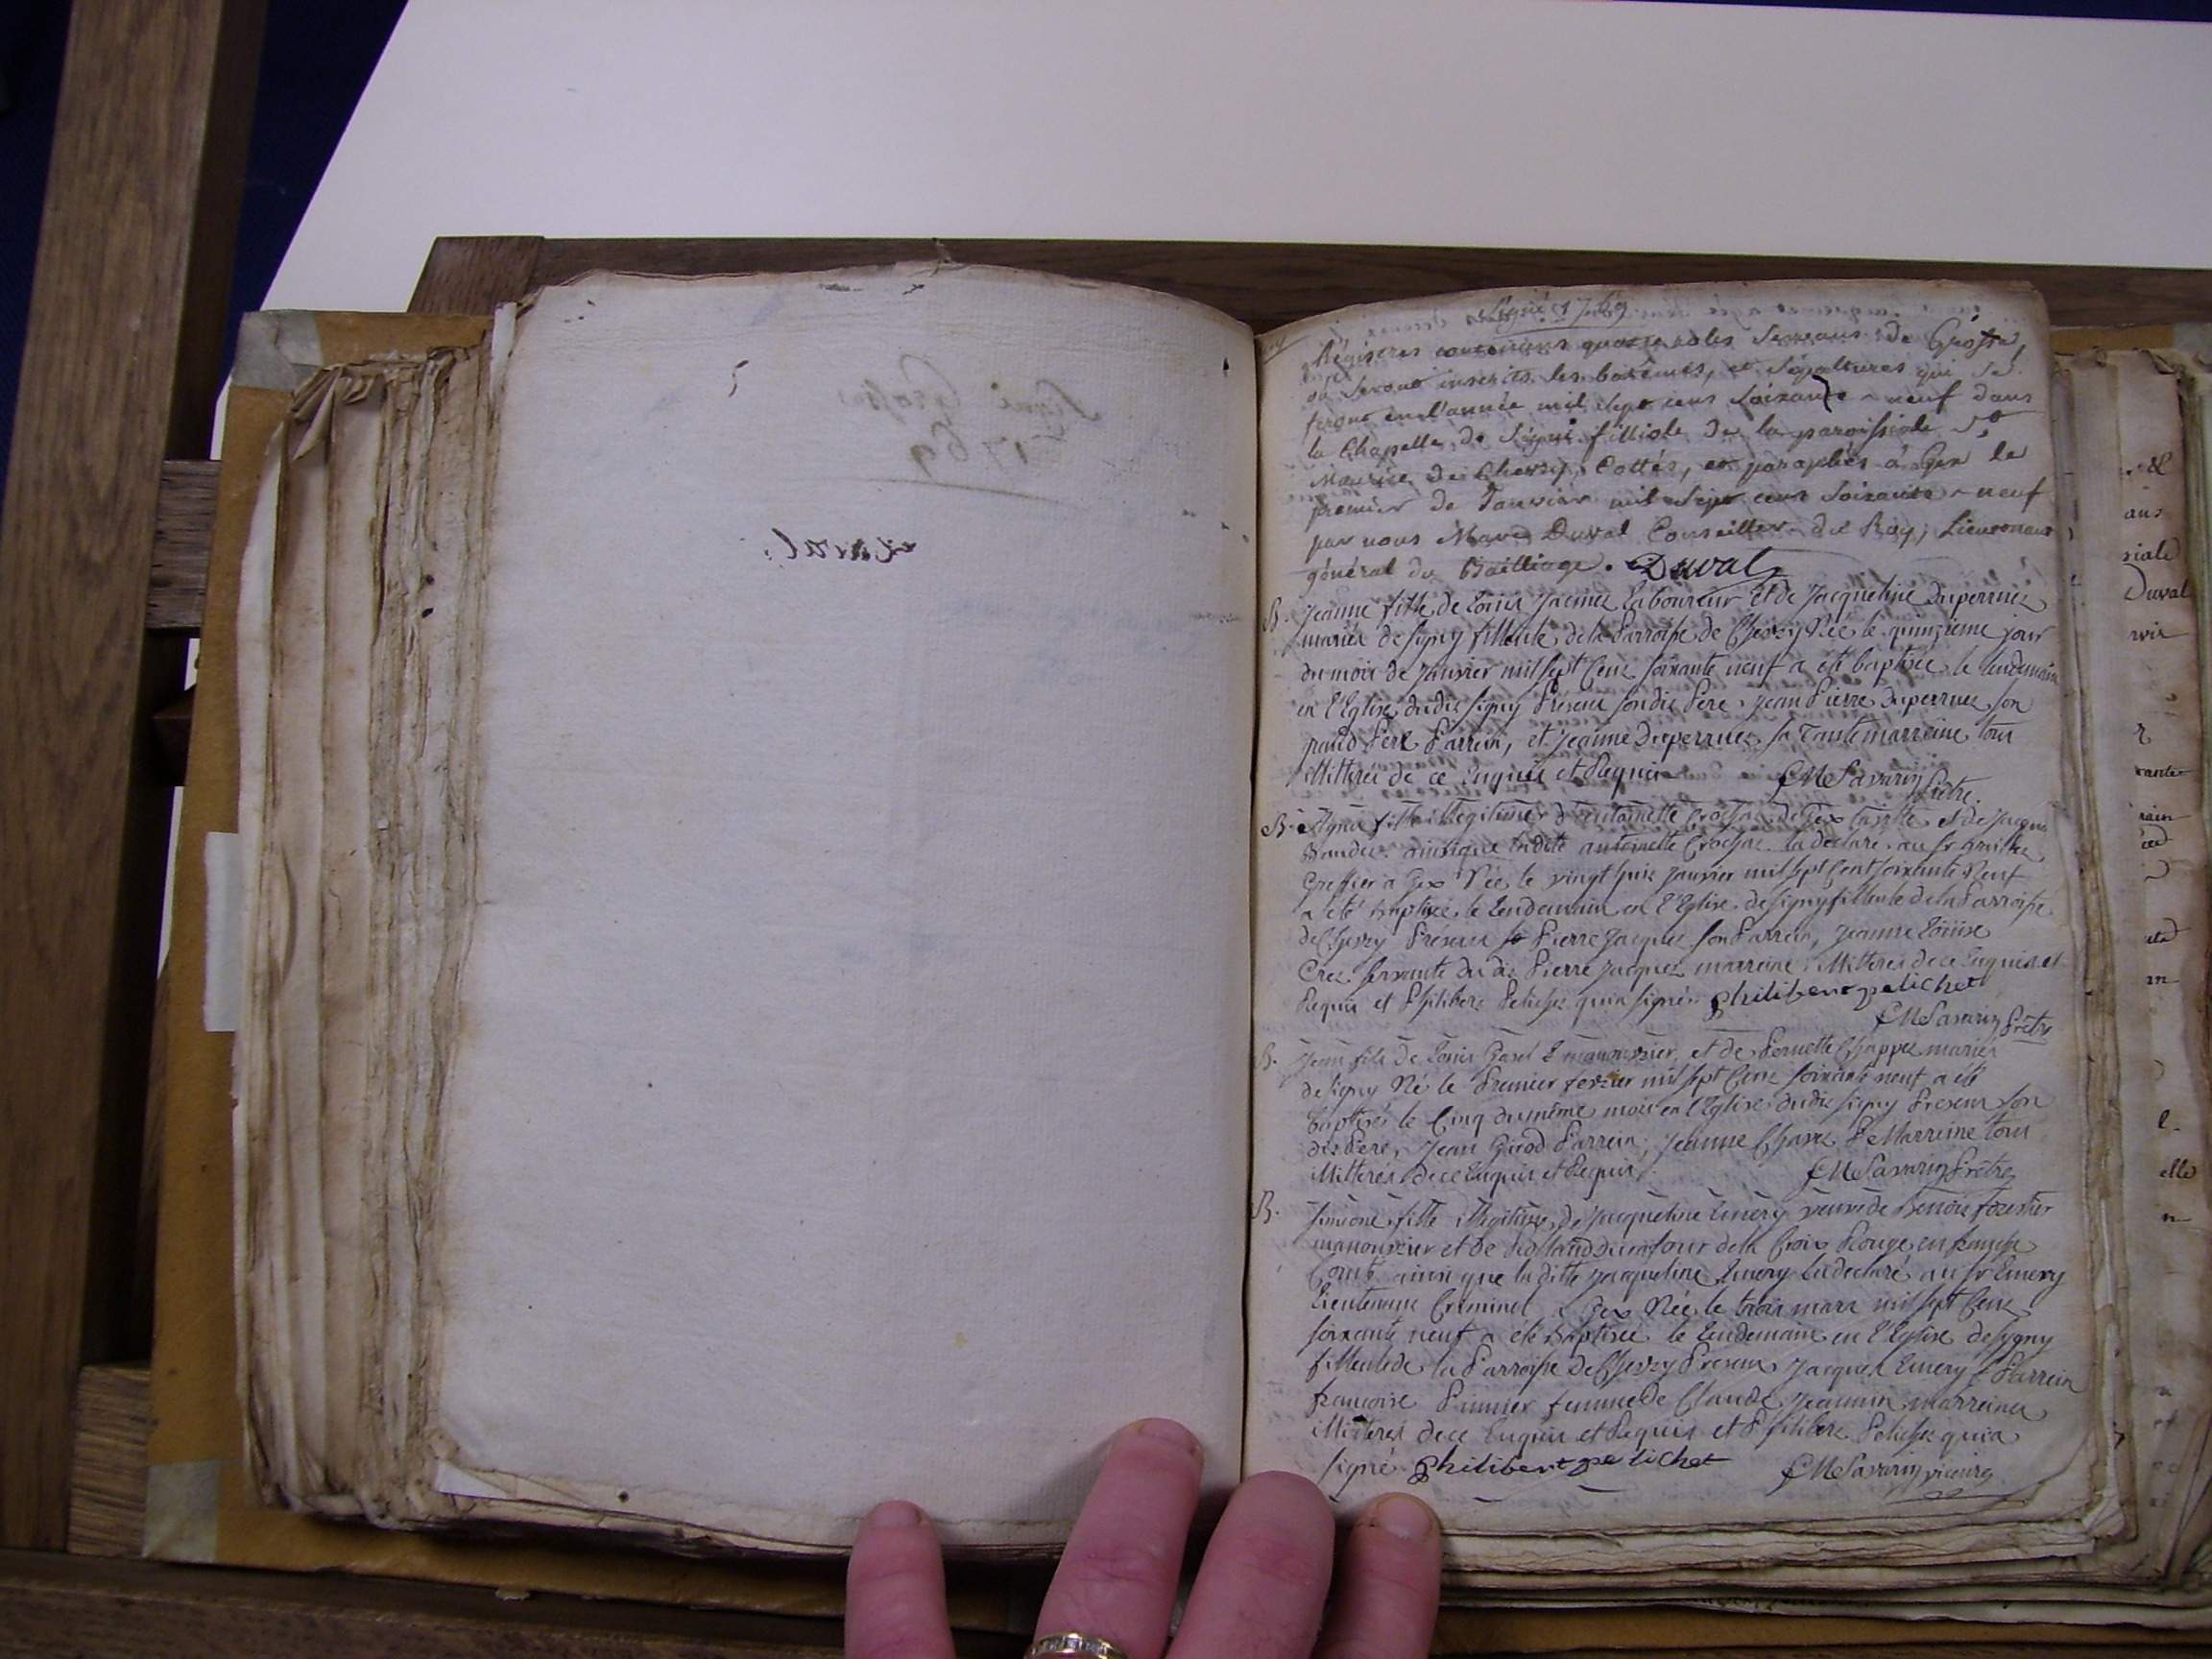 Segni 1769
Régistres contenans quatre rôles servans de Grosse,
où seront inscrits les batêmes, et sépultures qui se
feront en l'année mil sept cens soixante-neuf dans
la Chapelle de Ségni filliole de la paroissiale St
Maurice de Chevry, Cottés, et paraphés à Gex le
premier de Janvier mil sept cens soixante-neuf
par nous Marc Duval Conseiller du Roy, Lieutenant
général du Bailliage. Duval
B. Jeanne fille de Loüis Laboureur et de Jacqueline Duperruz
mariés de signy filleule de la Parroisse de Chevry Née le quinzieme jour
du mois de Janvier mil sept Cent soixante neuf a eté baptisée le lendemain
en l'Eglise dudit signy Présent sondit Pere, Jean Pierre Duperruz son
grand Pere Parrein, et Jeanne Duperruz sa Tante marreine tous
illitterés de ce Enquis et Requis CM Savarin Prêtre
B. fille illegitime d'antoinette Crochat de Gex et de Jacques
ainsi que ladite antoinette Crochat la declaré au Sr
Greffier a Gex Née le vingt huit Janvier mil sept Cent soixante Neuf
a eté baptisée le Lendemain en l'Eglise de signy filleule de la Parroisse
de Chevry Présent Pierre Jacquet son Parrein, Jeanne Loüise
Crez servante dudit Pierre Jacquet marreine illitterés de ce Enquis et
Requis et Philibert Pelichet qui a signé Philibert pelichet
CM Savarin Prêtre
B. Jean fils de Loüis manouvrier, et de Pernette Chappuz mariés
de signy Né le Premier fevrier mil sept Cent soixante neuf a eté
baptisé le Cinq du même mois en l'Eglise dudit signy Present son
dit Pere, Jean Girod Parrein, Jeanne Marreine tous
illitterés de ce Enquis et Requis CM Savarin Prêtre
B. Simeone fille illegitime de Jacqueline Emery veuve de Benoit forestier
manouvrier et de de la Croix Rouge en franche
Comté ainsi que la ditte Jacqueline Emery la declaré au Sr Emery
Lieutenant Criminel a Gex Née le trois mars mil sept Cent
soixante neuf a eté Baptisée le Lendemain en l'Eglise de signy
filleule de la Parroisse de Chevry Present Jacques Emery Parrein
francoise femme de Claude marreine
illitterés de ce Enquis et Requis et Philibert Pelichet qui a
signé Philibert pelichet CM Savarin vicaire
Segni Grosse
1769
Duval